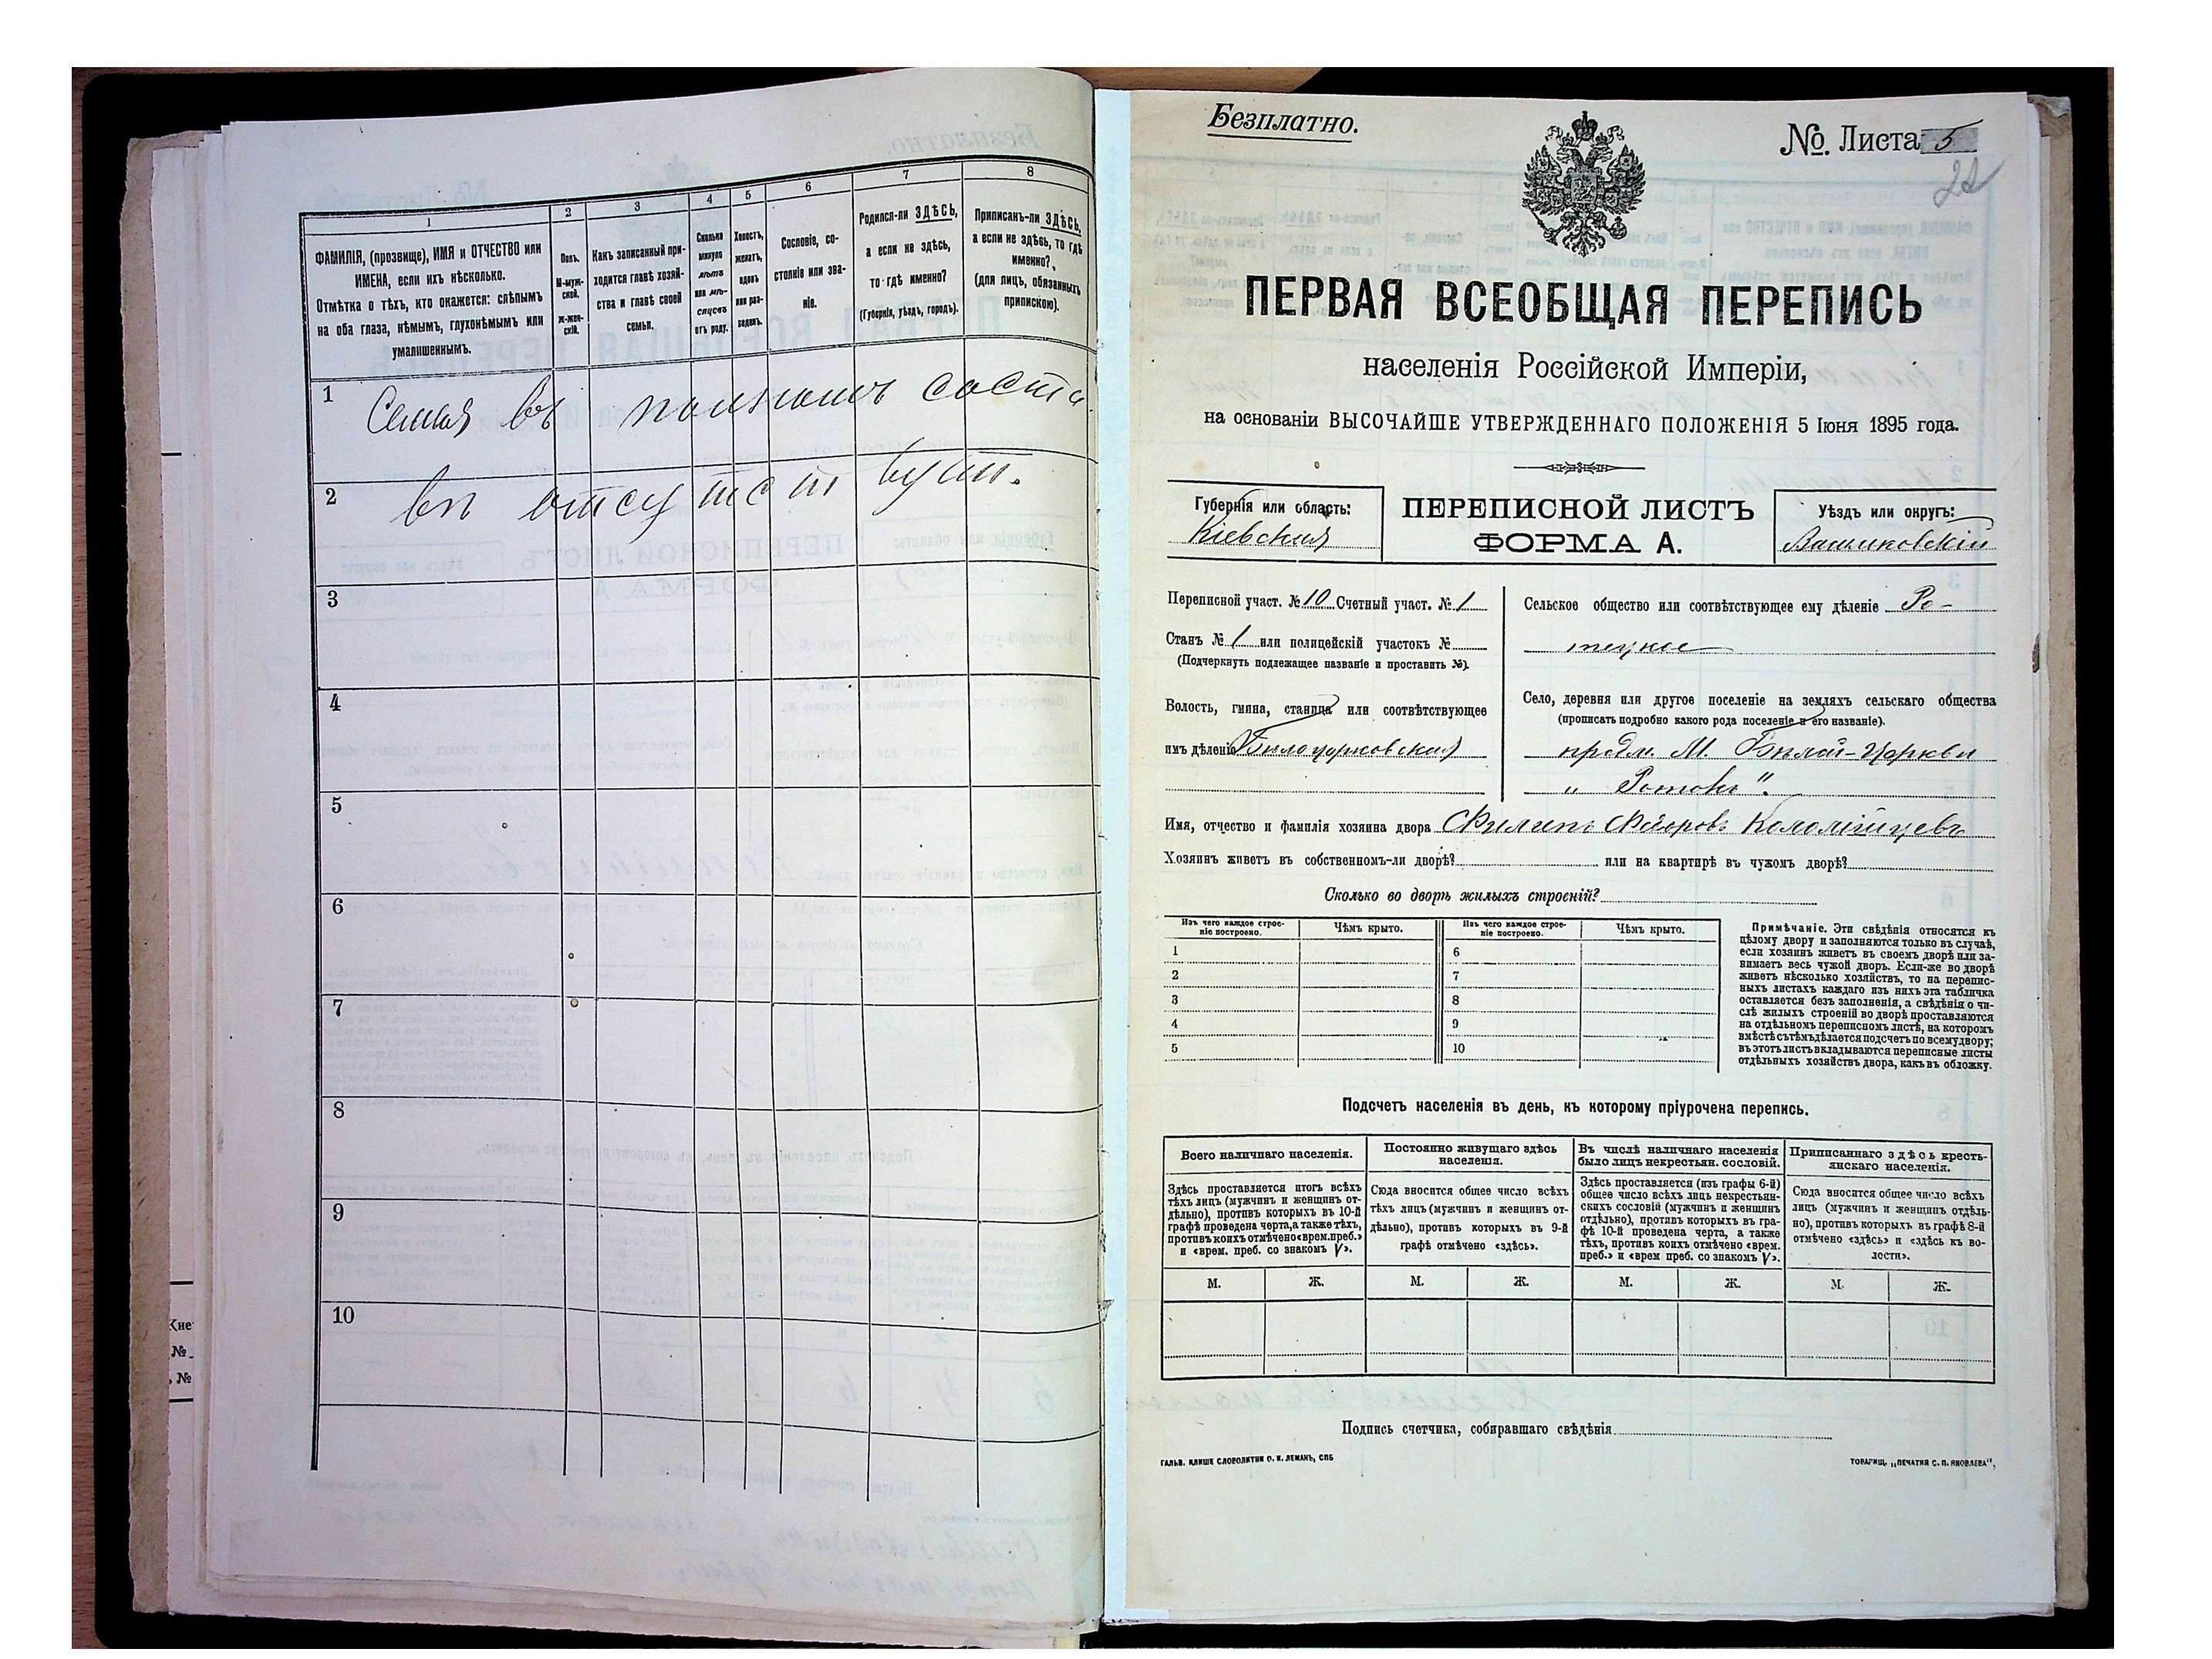 1
2
3
4
5
6
7
8
ФАМИЛІЯ, (прозвище), ИМЯ и ОТЧЕСТВО или
ИМЕНА, если ихъ нѣсколько.
Отмѣтка о тѣхъ, кто окажется: слѣпымъ
на оба глаза, нѣмымъ, глухонѣмымъ или
умалишеннымъ.
Полъ.
М-муж-
ской.
Ж-жен-
скій.
Какъ записанный при-
ходится главѣ хозяй-
ства и главѣ своей
семьи.
Сколько
минуло
лѣтъ
или мѣ-
сяцевъ
отъ роду.
Холостъ,
женатъ,
вдовъ
или раз-
веденъ.
Сословіе, со-
стояніе или зва-
ніе.
Родился-ли ЗДѢСЬ,
а если не здѣсь,
то-гдѣ именно?
(Губернія, уѣздъ, городъ).
Приписанъ-ли ЗДѢСЬ,
а если не здѣсь, то гдѣ
именно?
(для лицъ, обязанныхъ
припискою).
1 Семья въ полномъ соста
2 вѣ отсутствуетъ.
3
4
5
6
7
8
9
10
Безплатно.
№ Листа 5
ПЕРВАЯ ВСЕОБЩАЯ ПЕРЕПИСЬ
населенія Россійской Имперіи,
на основаніи ВЫСОЧАЙШЕ УТВЕРЖДЕННАГО ПОЛОЖЕНІЯ 5 Іюня 1895 года.
Губернія или область:
Кіевская
ПЕРЕПИСНОЙ ЛИСТЪ
ФОРМА А.
Уѣздъ или округъ:
Васильковскій
Переписной участ. № 10 Счетный участ. № 1
Станъ № 1 или полицейскій участокъ №
(Подчеркнуть подлежащее названіе и проставить №).
Волость, гмина, станица или соотвѣтствующее
имъ дѣленіе Бѣлоцерковская
Сельское общество или соотвѣтствующее ему дѣленіе Ро-
токское
Село, деревня или другое поселеніе на земляхъ сельскаго общества
(прописать подробно какого рода поселеніе и его названіе).
предм. М. Бѣлой-Церкви
„ Ротокъ".
Имя, отчество и фамилія хозяина двора Филипъ Федоровъ Коломійцевъ
Хозяинъ живетъ въ собственномъ-ли дворѣ? или на квартирѣ въ чужомъ дворѣ?
Сколько во дворѣ жилыхъ строеній?
Изъ чего каждое строе-
ніе построено.
Чѣмъ крыто.
Изъ чего каждое строе-
ніе построено.
Чѣмъ крыто.
1 6
2 7
3 8
4 9
5 10
Примѣчаніе. Эти свѣдѣнія относятся къ
цѣлому двору и заполняются только въ случаѣ,
если хозяинъ живетъ въ своемъ дворѣ или за-
нимаетъ весь чужой дворъ. Если-же во дворѣ
живетъ нѣсколько хозяйствъ, то на перепис-
ныхъ листахъ каждаго изъ нихъ эта табличка
оставляется безъ заполненія, а свѣдѣнія о чи-
слѣ жилыхъ строеній во дворѣ проставляются
на отдѣльномъ переписномъ листѣ, на которомъ
вмѣстѣ съ тѣмъ дѣлается подсчетъ по всему двору;
въ этотъ листъ вкладываются переписные листы
отдѣльныхъ хозяйствъ двора, какъ въ обложку.
Подсчетъ населенія въ день, къ которому пріурочена перепись.
Всего наличнаго населенія.
Здѣсь проставляется итогъ всѣхъ
тѣхъ лицъ (мужчинъ и женщинъ от-
дѣльно), противъ которыхъ въ 10-й
графѣ проведена черта, а также тѣхъ,
противъ коихъ отмѣчено «врем. преб.»
и «врем. преб. со знакомъ V».
Постоянно живущаго здѣсь
населенія.
Сюда вносится общее число всѣхъ
тѣхъ лицъ (мужчинъ и женщинъ от-
дѣльно), противъ которыхъ въ 9-й
графѣ отмѣчено «здѣсь».
Въ числѣ наличнаго населенія
было лицъ некрестьян. сословій.
Здѣсь проставляется (изъ графы 6-й)
общее число всѣхъ лицъ некрестьян-
скихъ сословій (мужчинъ и женщинъ
отдѣльно), противъ которыхъ въ гра-
фѣ 10-й проведена черта, а также
тѣхъ, противъ коихъ отмѣчено «врем.
преб.» и «врем преб. со знакомъ V».
Приписаннаго здѣсь кресть-
янскаго населенія.
Сюда вносится общее число всѣхъ
лицъ (мужчинъ и женщинъ отдѣль-
но), противъ которыхъ въ графѣ 8-й
отмѣчено «здѣсь» и «здѣсь къ во-
лости».
М. Ж. М. Ж. М. Ж. М. Ж.
Подпись счетчика, собиравшаго свѣдѣнія
ГАЛЬВ. КЛИШЕ СЛОВОЛИТНИ О. И. ЛЕМАНЪ, СПБ
ТОВАРИЩ. „ПЕЧАТНЯ С. П. ЯКОВЛЕВА",